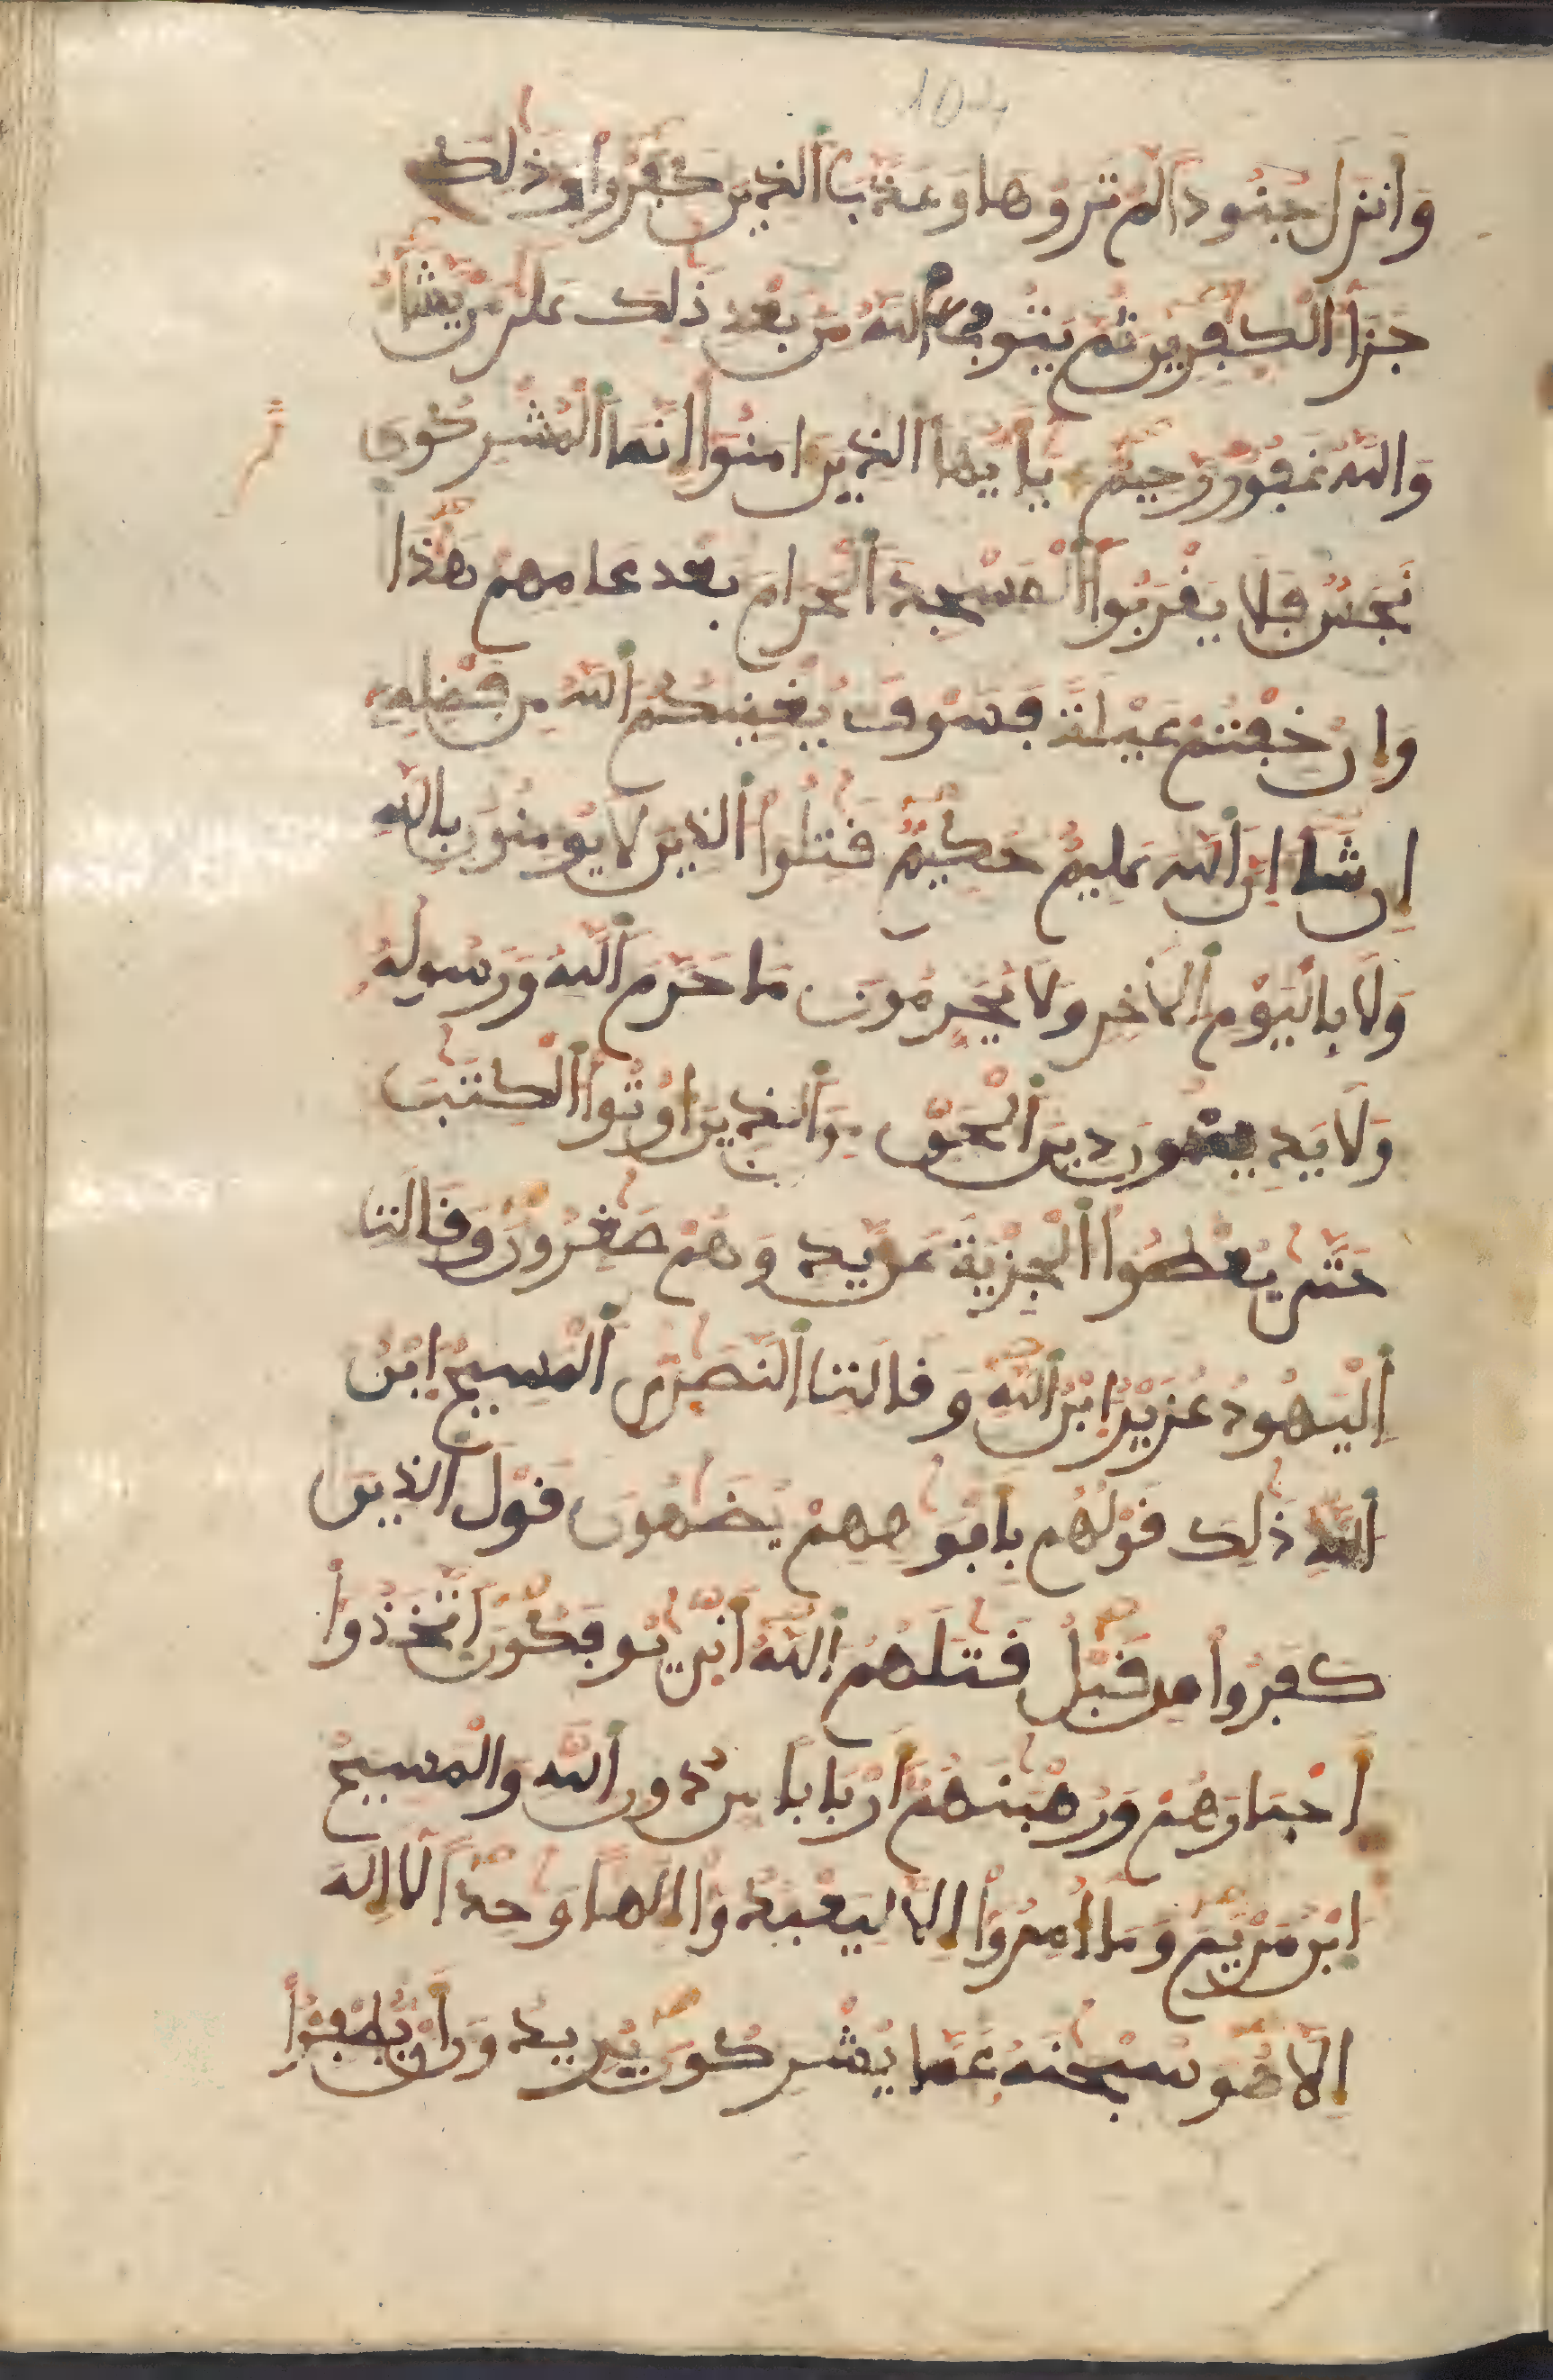 وَأَنزَلَ جُنُوداً لَّمْ تَرَوْهَا وَعَذَّبَ ٱلذِينَ كَفَرُواْ وَذَٰلِكَ
جَزَآءُ ٱلْكَٰفِرِينَ ثُمَّ يَتُوبُ ٱللَّهُ مِنۢ بَعْدِ ذَٰلِكَ عَلَىٰ مَنْ يَّشَآءُ
وَاللَّهُ غَفُورٌ رَّحِيمٌ يَٰٓأَيُّهَا ٱلذِينَ ءَامَنُوٓاْ إِنَّمَا ٱلْمُشْرِكُونَ
نَجَسٌ فَلَا يَقْرَبُواْ ٱلْمَسْجِدَ ٱلْحَرَامَ بَعْدَ عَامِهِمْ هَٰذَا
وَإِنْ خِفْتُمْ عَيْلَةً فَسَوْفَ يُغْنِيكُمُ ٱللَّهُ مِن فَضْلِهِۦٓ
إِن شَآءَ اِنَّ ٱللَّهَ عَلِيمٌ حَكِيمٌ قَٰتِلُواْ ٱلذِينَ لَا يُومِنُونَ بِاللَّهِ
وَلَا بِالْيَوْمِ ٱلَاخِرِ وَلَا يُحَرِّمُونَ مَا حَرَّمَ ٱللَّهُ وَرَسُولُهُ
وَلَا يَدِينُونَ دِينَ ٱلْحَقِّ مِنَ ٱلذِينَ أُوتُواْ ٱلْكِتَٰبَ
حَتَّىٰ يُعْطُواْ ٱلْجِزْيَةَ عَنْ يَّدٍ وَهُمْ صَٰغِرُونَ وَقَالَتِ
ٱلْيَهُودُ عُزَيْرُ ابْنُ ٱللَّهِ وَقَالَتِ ٱلنَّصَٰرَى ٱلْمَسِيحُ ابْنُ
ٱللَّهِ ذَٰلِكَ قَوْلُهُم بِأَفْوَٰهِهِمْ يُضَٰهُونَ قَوْلَ ٱلذِينَ
كَفَرُواْ مِن قَبْلُ قَٰتَلَهُمُ ٱللَّهُ أَنَّىٰ يُوفَكُونَ اَتَّخَذُوٓاْ
أَحْبَارَهُمْ وَرُهْبَٰنَهُمُۥٓ أَرْبَاباً مِّن دُونِ ٱللَّهِ وَالْمَسِيحَ
ابْنَ مَرْيَمَ وَمَآ أُمِرُوٓاْ إِلَّا لِيَعْبُدُوٓاْ إِلَٰهاً وَٰحِداً لَّآ إِلَٰهَ
إِلَّا هُوَ سُبْحَٰنَهُۥ عَمَّا يُشْرِكُونَ يُرِيدُونَ أَنْ يُّطْفِـُٔواْ